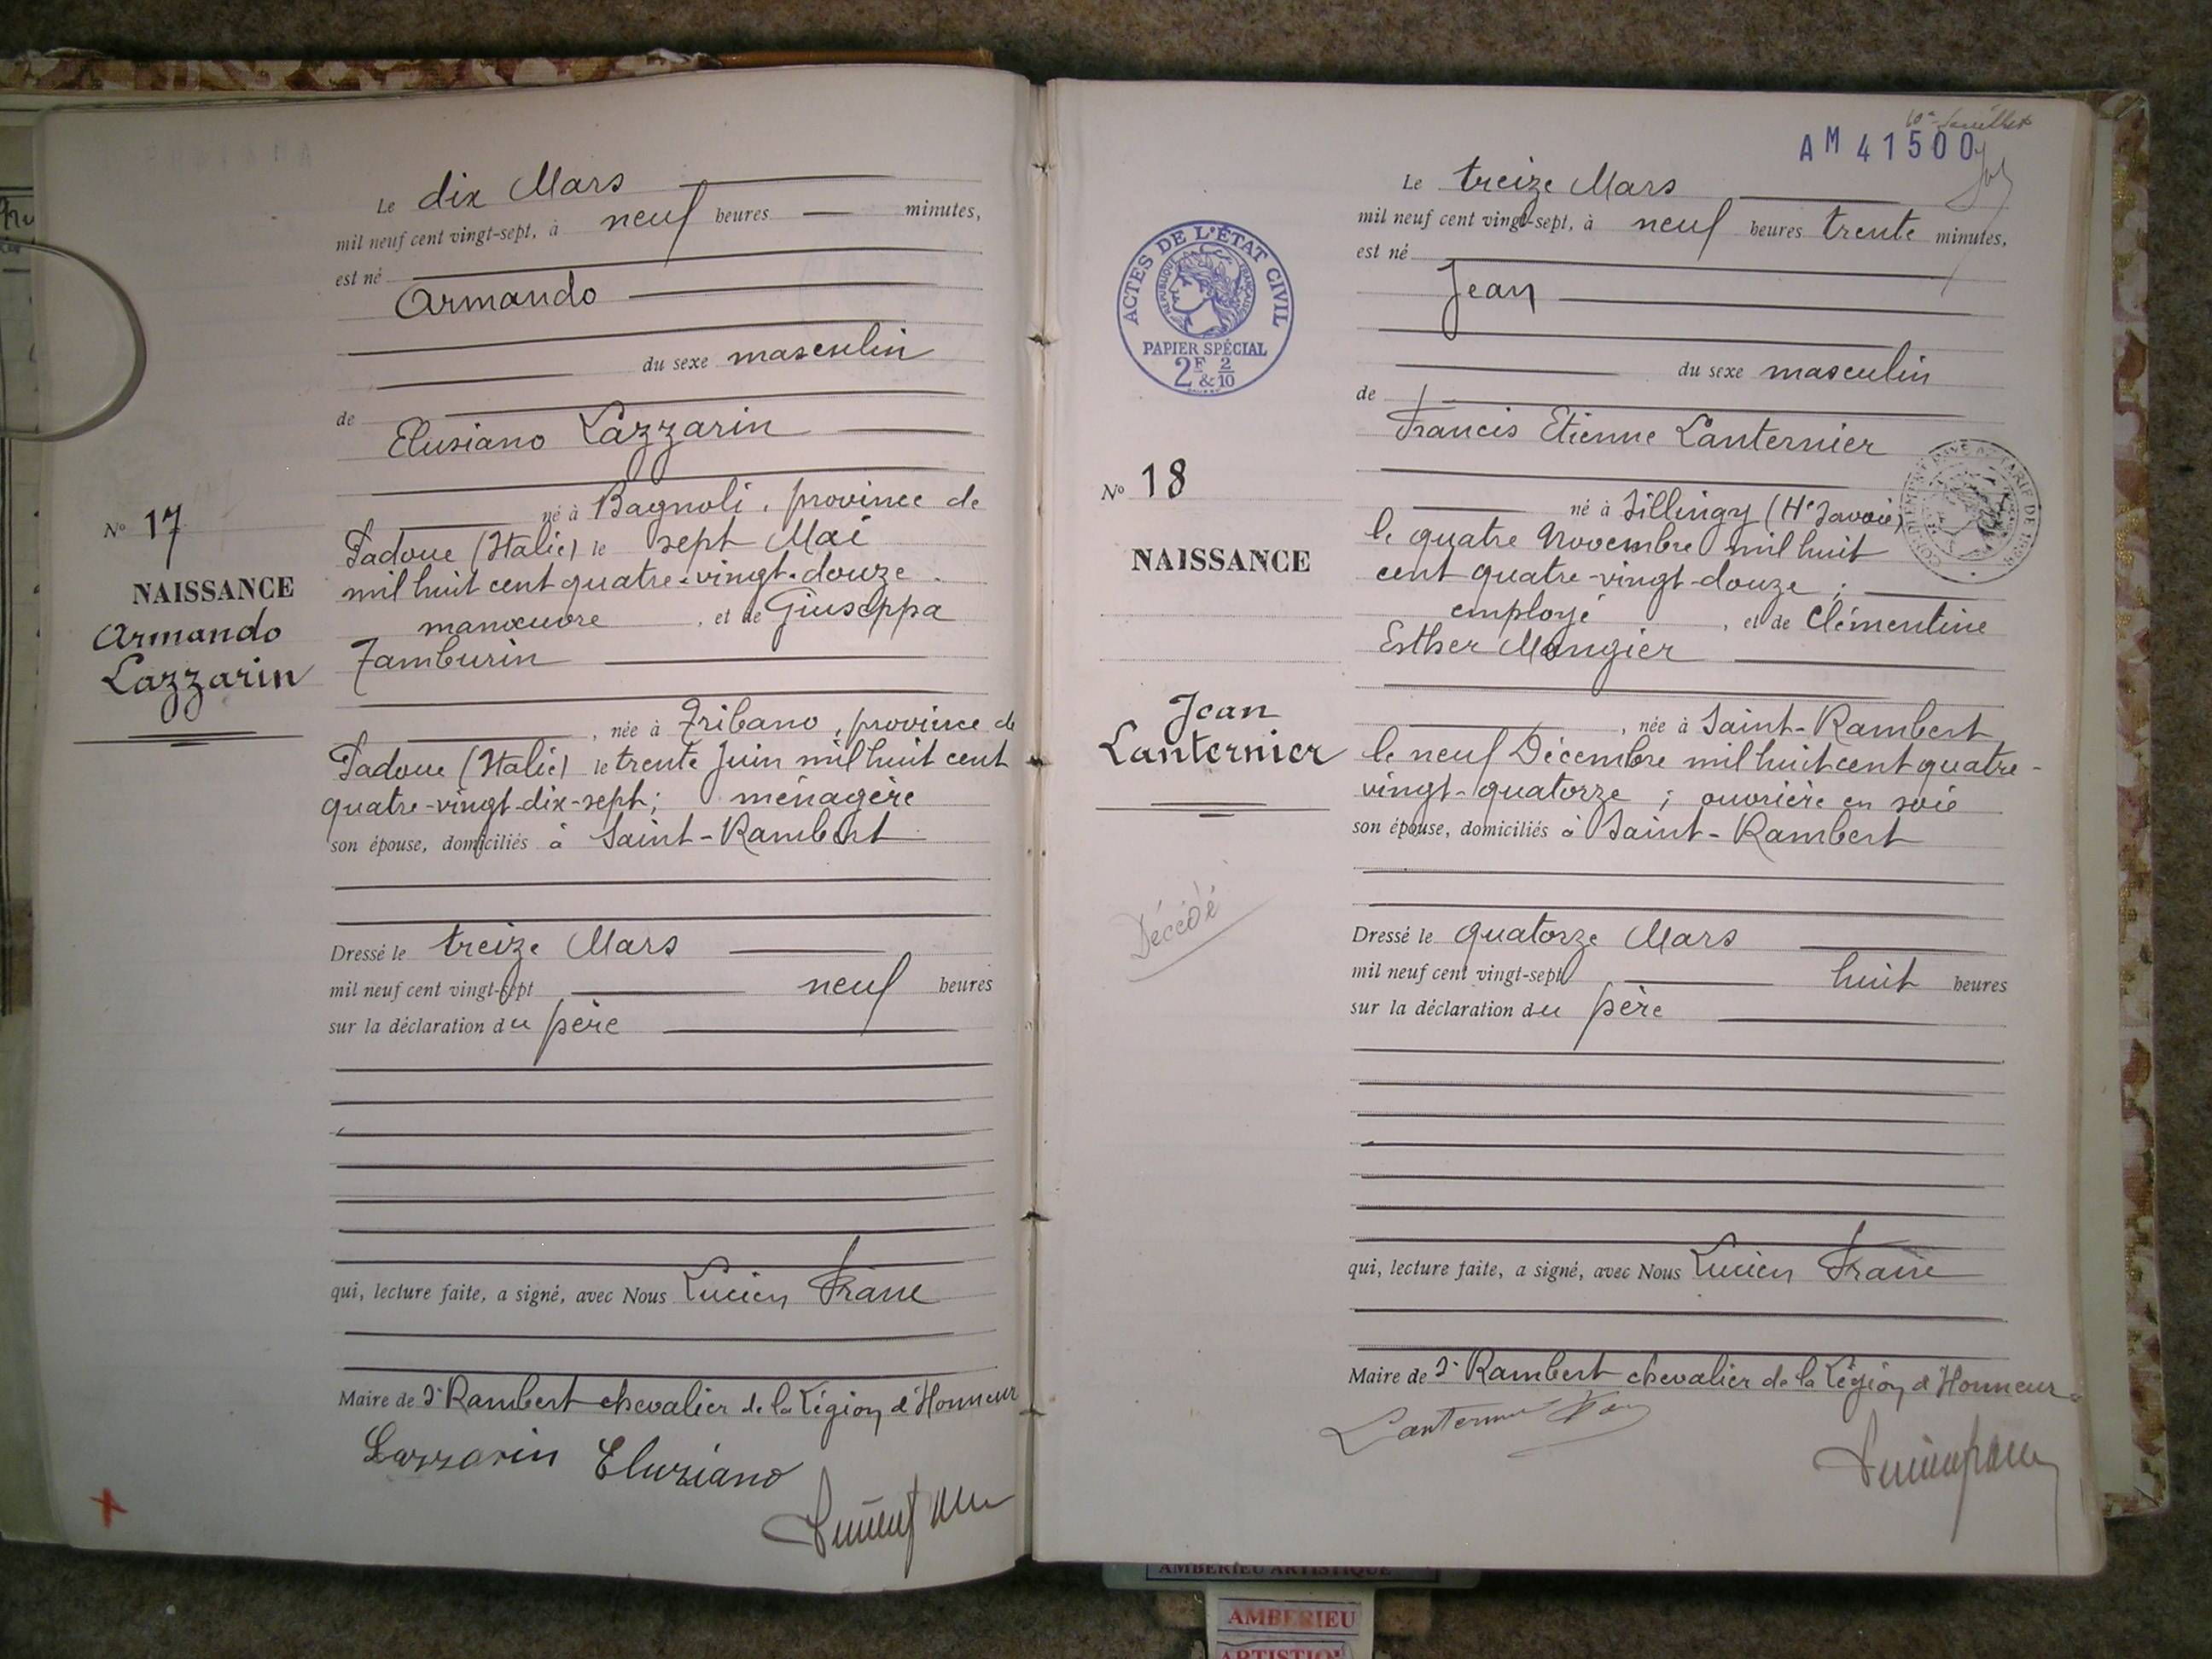 Le dix Mars
mil neuf cent vingt-sept, à neuf heures — minutes,
est né
Armando
du sexe masculin
de
Elusiano Lazzarin
né à Bagnoli, province de
Padoue (Italie) le sept Mai
mil huit cent quatre-vingt-douze
manœuvre, et de Giuseppa
Tamburin
, née à Tribano, province de
Padoue (Italie) le trente Juin mil huit cent
quatre-vingt-dix-sept; ménagère
son épouse, domiciliés à Saint-Rambert
Dressé le treize Mars
mil neuf cent vingt-sept neuf heures
sur la déclaration du père
qui, lecture faite, a signé, avec Nous Lucien Franc
Maire de St Rambert chevalier de la Légion d'Honneur
Lazzarin Eluziano
N° 17
NAISSANCE
Armando
Lazzarin
AM 41500
Le treize Mars
mil neuf cent vingt-sept, à neuf heures trente minutes,
est né
Jean
du sexe masculin
de
Francis Etienne Lanternier
né à Sillingy (Hte Savoie)
le quatre Novembre mil huit
cent quatre-vingt-douze ;
employé, et de Clémentine
Esther Mongier
, née à Saint-Rambert
le neuf Décembre mil huit cent quatre-
vingt-quatorze ; ouvrière en soie
son épouse, domiciliés à Saint-Rambert
Dressé le quatorze Mars
mil neuf cent vingt-sept huit heures
sur la déclaration du père
qui, lecture faite, a signé, avec Nous Lucien Franc
Maire de St Rambert chevalier de la Légion d'Honneur
ACTES DE L'ÉTAT CIVIL
RÉPUBLIQUE FRANÇAISE
PAPIER SPÉCIAL
2F & 2/10
N° 18
NAISSANCE
Jean
Lanternier
Décédé
AMBERIEU ARTISTIQUE
AMBERIEU